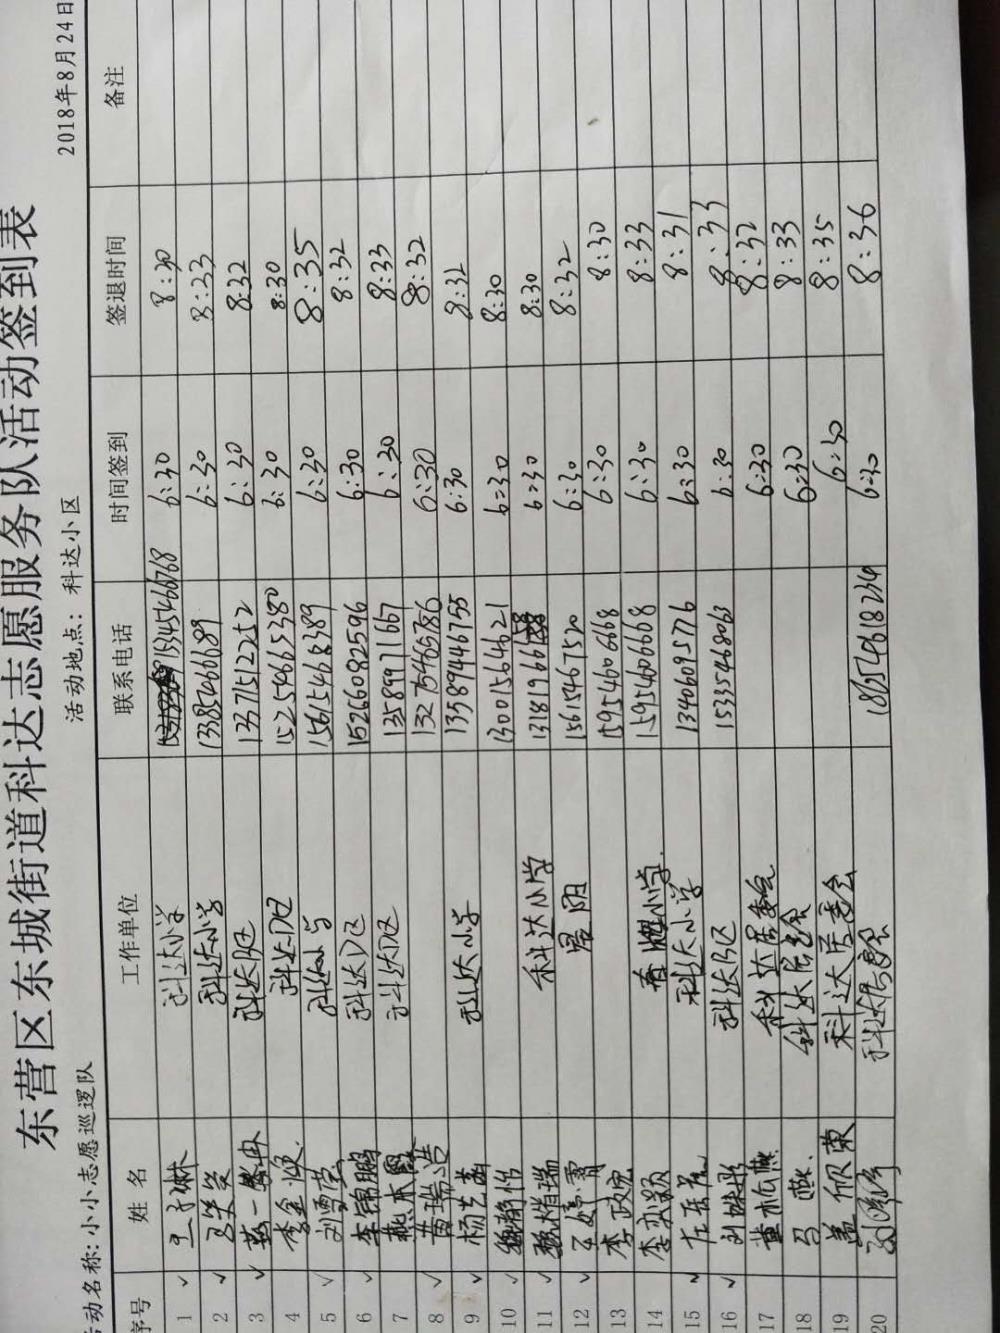 东营区东城街道科达志愿服务队活动签到表
活动名称：小小志愿巡逻队 活动地点：科达小区 2018年8月24日
序号 姓名 工作单位 联系电话 时间签到 签退时间 备注
1 ✓ 科达小学 15345466768 6:30 8:30
2 ✓ 科达小学 13385466689 6:30 8:33
3 ✓ 科达B区 13371512252 6:30 8:32
4 李金 科达D区 15254665380 6:30 8:30
5 ✓ 刘雪莹 科达小学 15615468389 6:30 8:35
6 ✓ 李锦鹏 科达D区 15266082596 6:30 8:32
7 燕 科达D区 13589971667 6:30 8:33
8 ✓ 苗瑞浩 13275465786 6:30 8:32
9 ✓ 杨 科达小学 13589446755 6:30 8:32
10 ✓ 魏静怡 13001564621 6:30 8:30
11 ✓ 魏楷瑞 科达小学 6:30 8:30
12 ✓ 景阳 15615467520 6:30 8:32
13 李政宛 15954606668 6:30 8:30
14 李奕颖 小学 15954606608 6:30 8:33
15 ✓ 左岳 科达小学 13406095776 6:30 8:31
16 ✓ 刘姝彤 科达B区 15335468063 6:30 8:33
17 董松燕 科达居委会 6:30 8:32
18 马燕 科达居委会 6:30 8:33
19 盖欣荣 科达居委会 6:30 8:35
20 科达居委会 18654618234 6:30 8:36